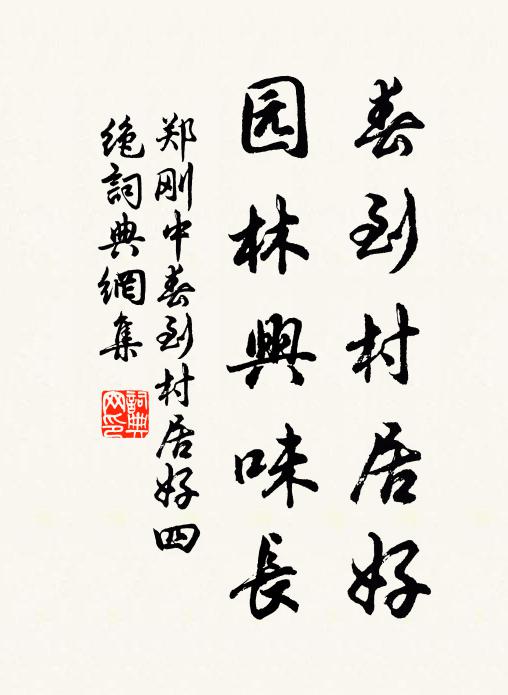 春到村居好
园林興味長
郑刚中春到村居好四
绝詞典網集
詞典网印